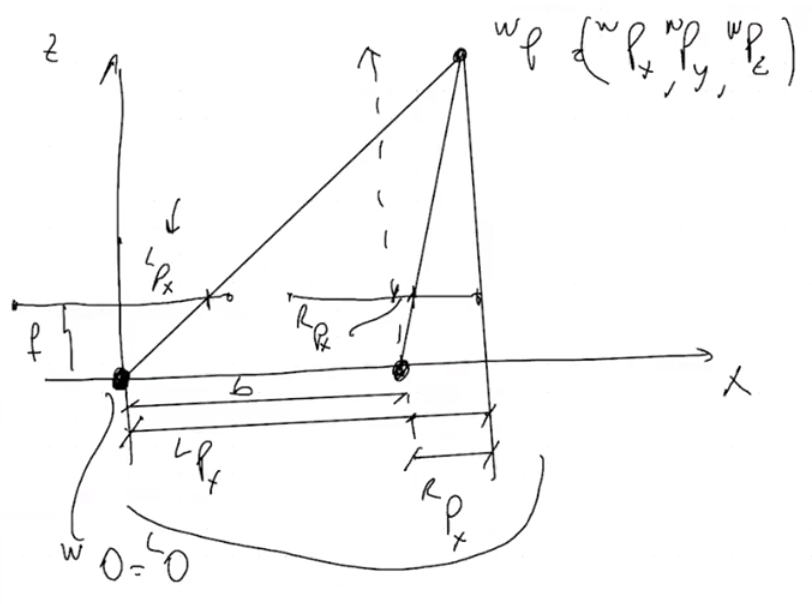 z
ᵂP = (ᵂPₓ, ᵂPᵧ, ᵂP_z)
ᴸpₓ
f
ᴿpₓ
b
X
ᴸPₓ
ᴿPₓ
ᵂO = ᴸO